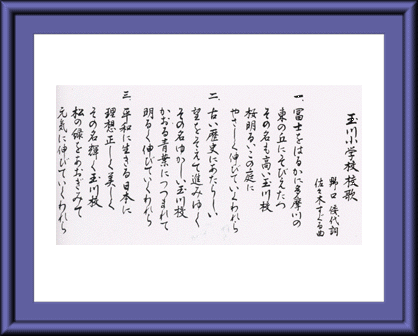 玉川小学校校歌
野口 倭代詞
佐々木すぐる曲
一、富士をはるかに多摩川の
東の丘にそびえたつ
その名も高い玉川校
桜明るいこの庭に
やさしく伸びていくわれら
二、古い歴史にあたらしい
望をそえて進みゆく
その名ゆかしい玉川校
かおる青葉につつまれて
明るく伸びていくわれら
三、平和に生きる日本に
理想正しく美しく
その名輝く玉川校
松の緑をあおぎみて
元気に伸びていくわれら